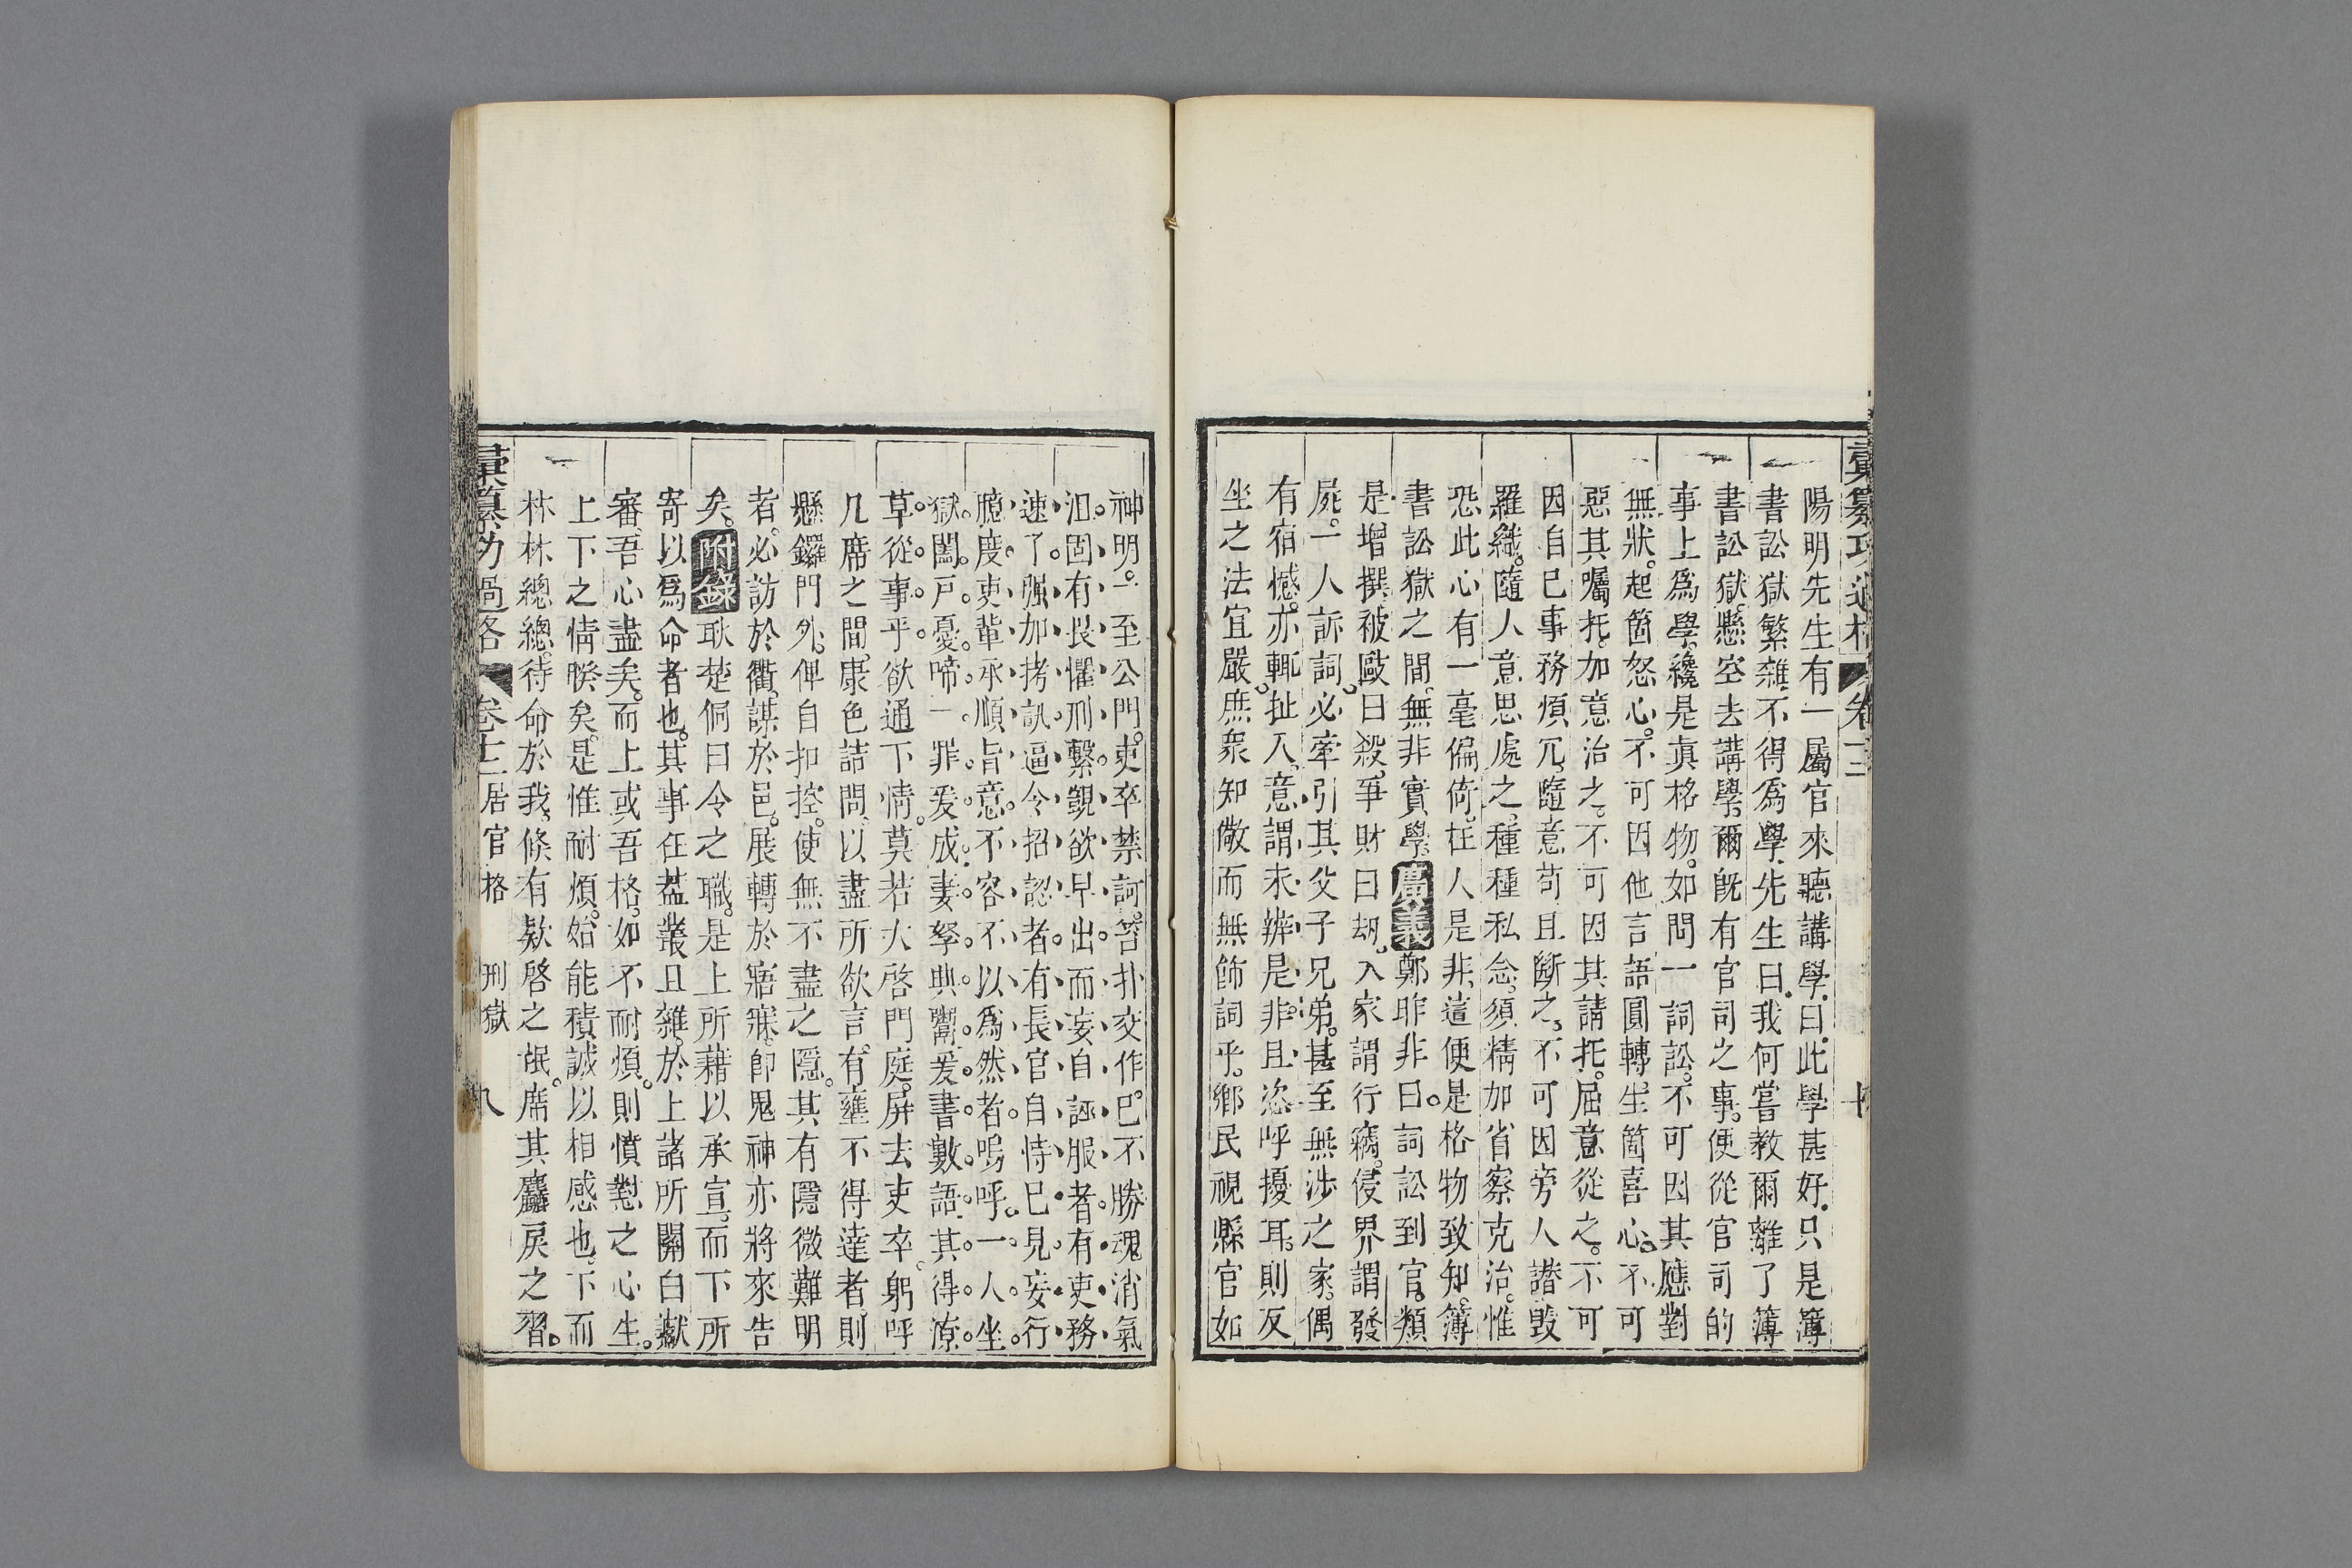 陽明先生有一屬官來聽講學曰此學甚好只是簿
書訟獄繁雜不得爲學先生曰我何嘗教爾離了簿
書訟獄懸空去講學爾旣有官司之事便從官司的
事上爲學纔是眞格物如問一詞訟不可因其應對
無狀起箇怒心不可因他言語圓轉生箇喜心不可
惡其囑托加意治之不可因其請托屈意從之不可
因自己事務煩冗隨意苟且斷之不可因旁人譖毀
羅織隨人意思處之種種私念須精加省察克治惟
恐此心有一毫偏倚在人是非這便是格物致知簿
書訟獄之間無非實學廣義鄭昨非曰詞訟到官類
是增撰被毆曰殺爭財曰刼入家謂行竊侵界謂發
屍一人訴詞必牽引其父子兄弟甚至無涉之家偶
有宿憾亦輒扯入意謂未辨是非且恣呼擾耳則反
坐之法宜嚴庶衆知儆而無飾詞乎鄉民視縣官如
神明一至公門吏卒禁訶笞扑交作巳不勝魂消氣
沮固有畏懼刑繫覬欲早出而妄自誣服者有吏務
速了强加拷訊逼令招認者有長官自恃巳見妄行
臆度吏輩承順旨意不容不以爲然者嗚呼一人坐
獄闔戸憂啼一罪爰成妻孥典鬻爰書數語其得潦
草從事乎欲通下情莫若大啓門庭屏去吏卒躬呼
几席之間康色詰問以盡所欲言有壅不得達者則
懸鑼門外俾自扣控使無不盡之隱其有隱微難明
者必訪於衢謀於邑展轉於寤寐卽鬼神亦將來告
矣附錄耿楚侗曰令之職是上所藉以承宣而下所
寄以爲命者也其事任葢叢且雜於上諸所關白獻
審吾心盡矣而上或吾格如不耐煩則憤懟之心生
上下之情睽矣是惟耐煩始能積誠以相感也下而
林林總總待命於我倏有欵啓之氓席其麤戾之習
彙纂功過格 卷十二居官格 刑獄 八